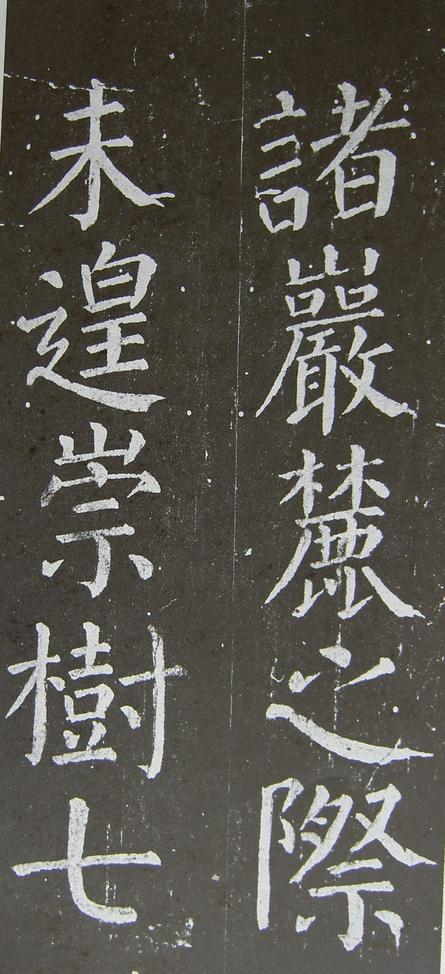 諸巖麓之際
未遑崇樹七